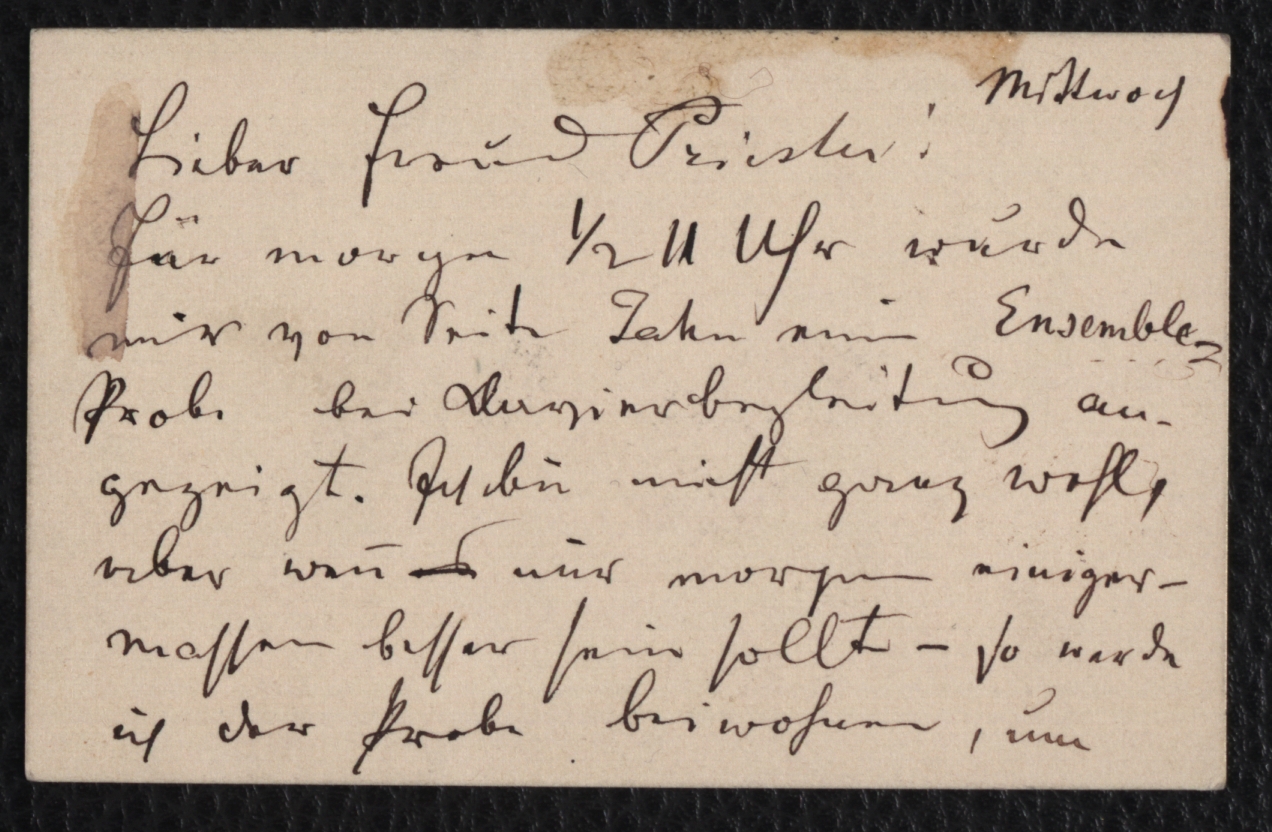 Mittwoch
Lieber Freund Priester!
Für morgen 1/2 11 Uhr wurde
mir von Seite Jahn eine Ensemble-
Probe bei Clavierbegleitung an-
gezeigt. Ich bin nicht ganz wohl,
aber wen̄ mir morgen einiger-
massen besser sein sollte – so werde
ich der Probe beiwohnen, um